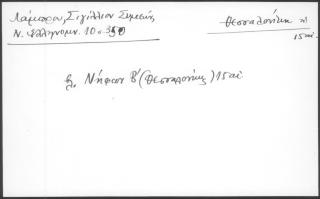 Λάμπρου, Σιγίλλιον Συμεών,
Ν. Ελληνομν. 10 · 350
Θεσσαλονίκη
15 αἰ
βλ. Νήφων Β' (Θεσσαλονίκης) 15 αἰ